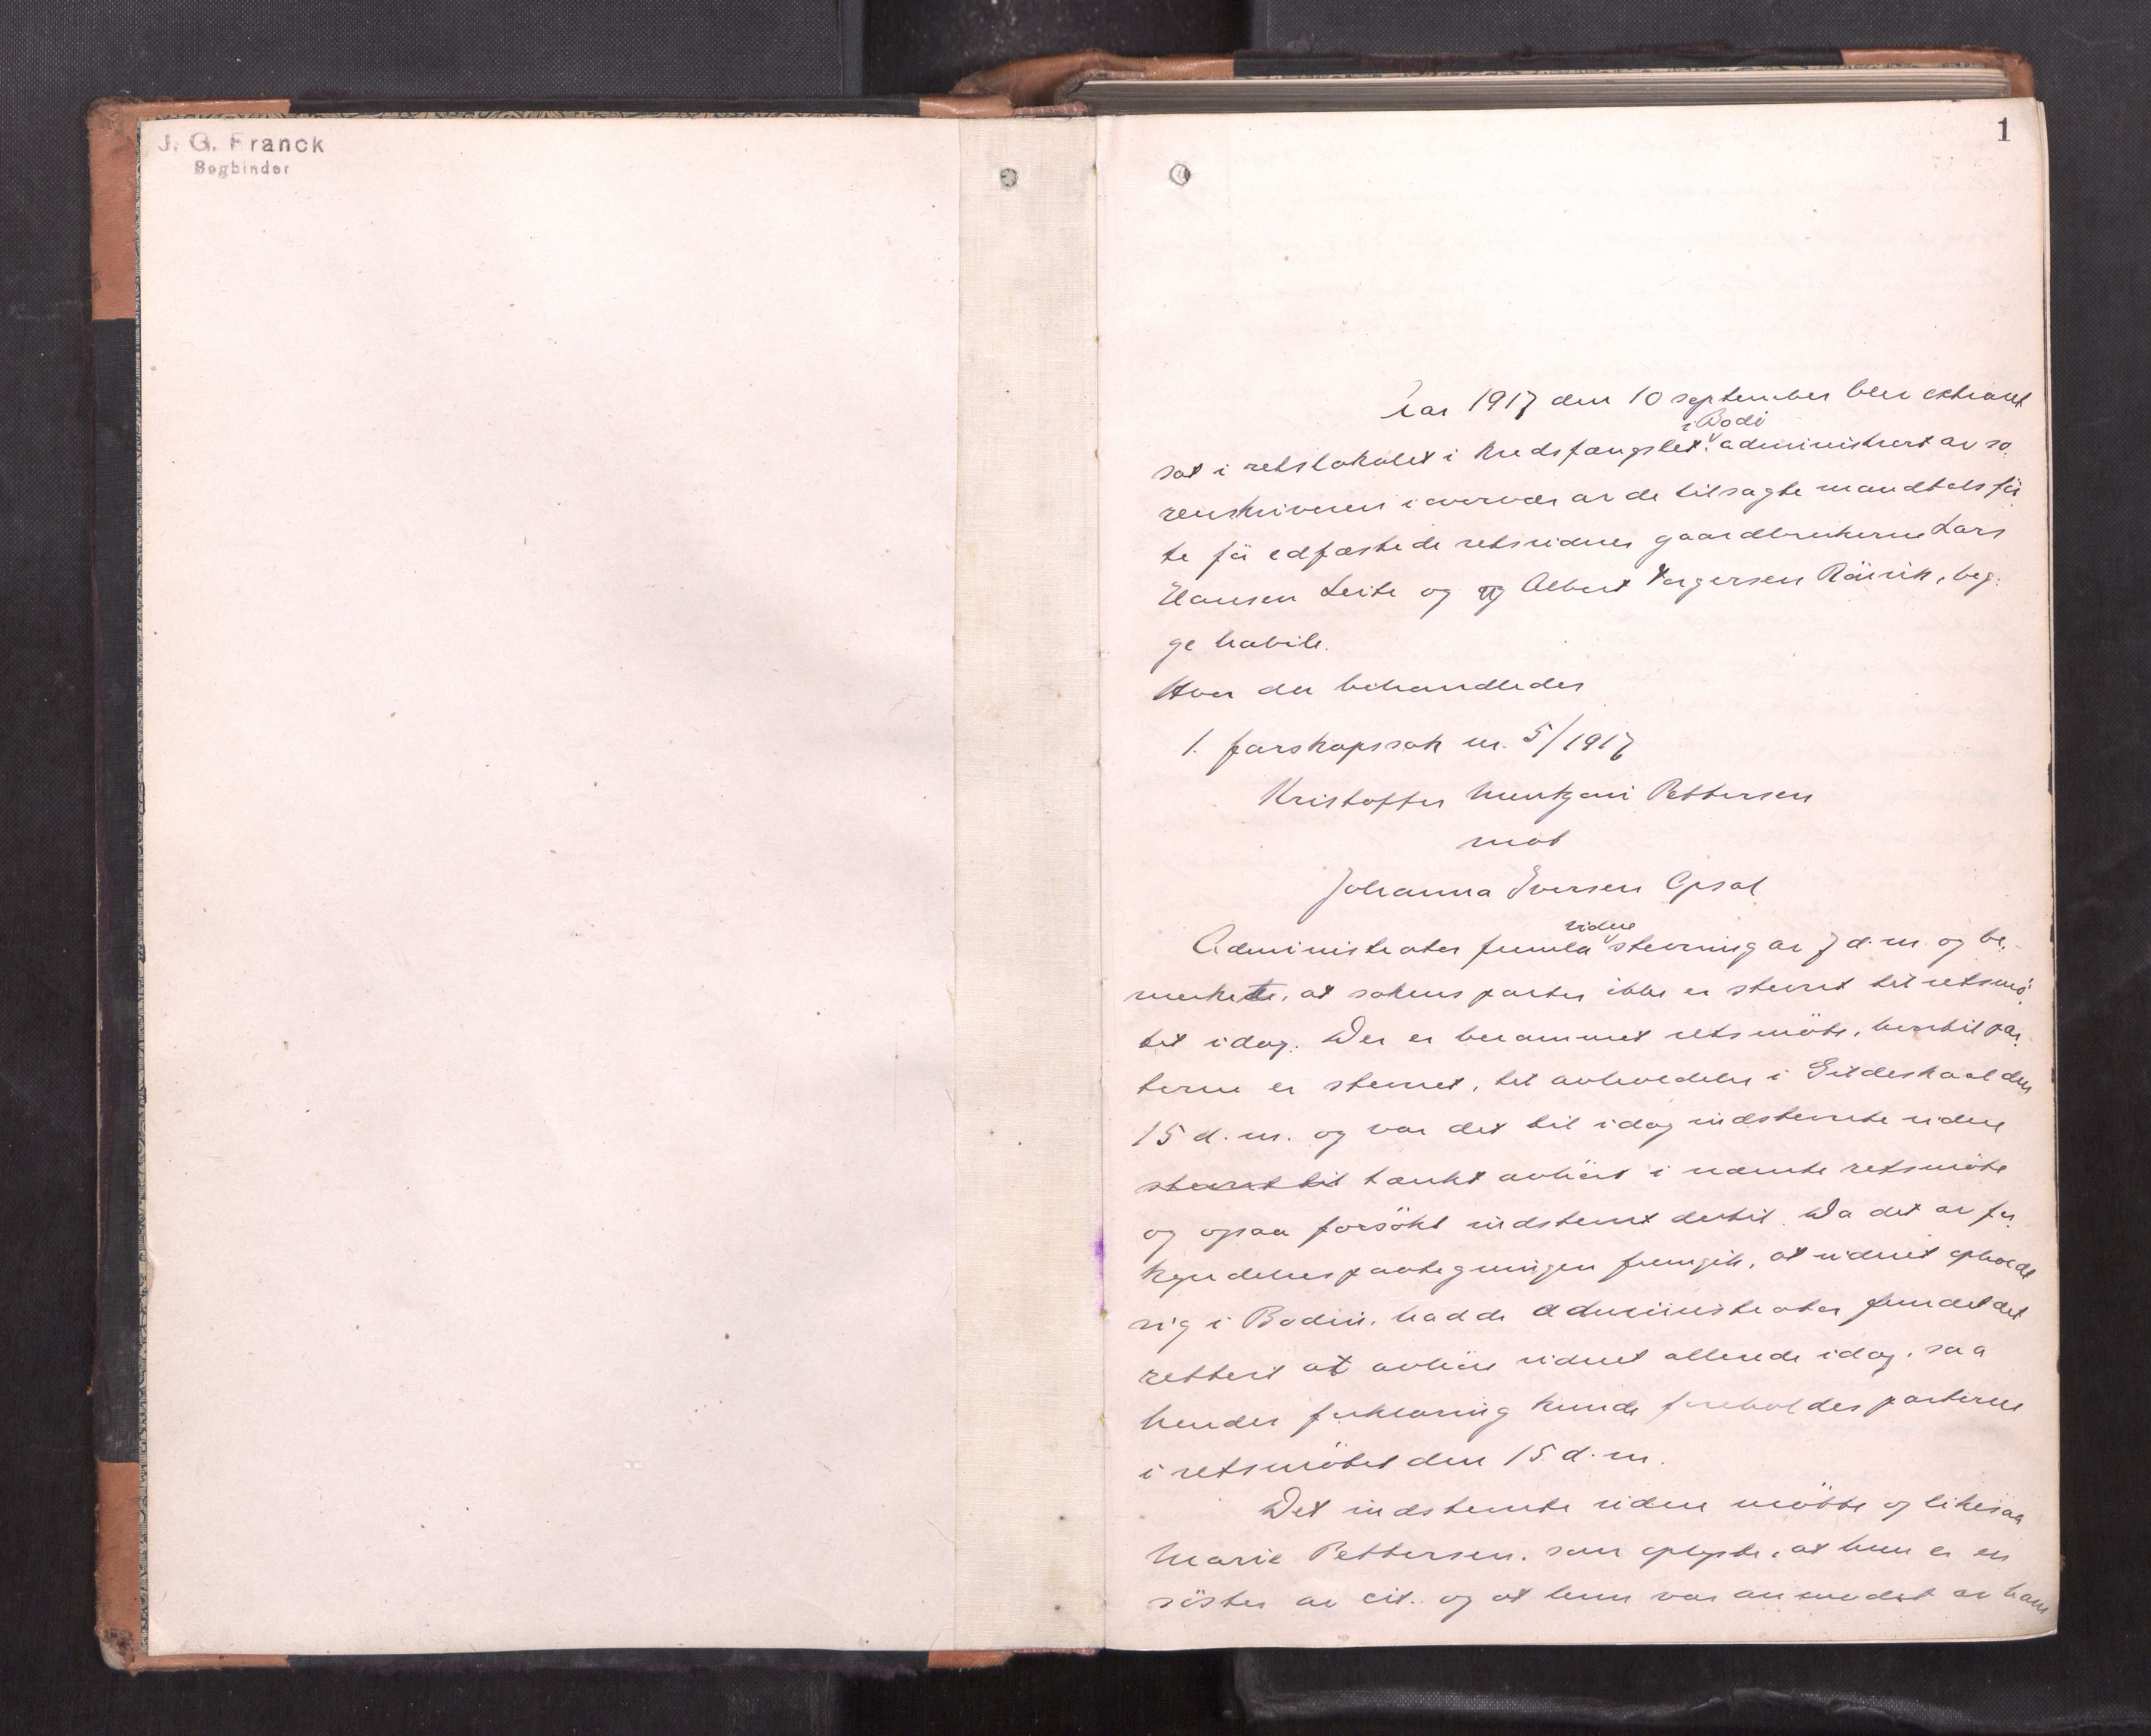 J. G. Franck
Bogbinder
1
Aar 1917 den 10 september blev ekstraret
i Bodö
sat i retslokalet i kredsfængslet administrert av so¬
renskriveren i overvær av de tilsagte mandtalsför¬
te för edfæstede retsvidner gaardbrukerne Lars
Hansen Leite og og Albert Torgersen Röivik, beg¬
ge habile.
Hvor der behandledes
1. farskapssak nr. 5/1917
Kristoffer Mentzoni Pettersen
mot
Johanna Iversen Opsal
vidne
Administrator fremla stevning av 7 d.m. og be¬
merkete, at sakens parter ikke er stevnet til retsmö¬
tet idag. Der er berammet retsmöte, hvortil par¬
terne er stevnet, til avholdelse i Gildeskaal den
15 d.m. og var det til idag indstevnte vidne
stevnet til tænkt avhört i nævnte retsmöte
og ogsaa forsökt indstevnt dertil. Da det av for¬
kyndelsespaategningen fremgik, at vidnet opholdt
sig i Bodin, hadde administrator fundet det
rettest at avhöre vidnet allerede idag, saa
hendes forklaring kunde foreholdes parterne
i retsmötet den 15 d.m.
Det indstevnte vidne mötte og likesaa
Marie Pettersen, som oplyste, at hun er en
söster av cit. og at hun var anmodet av ham